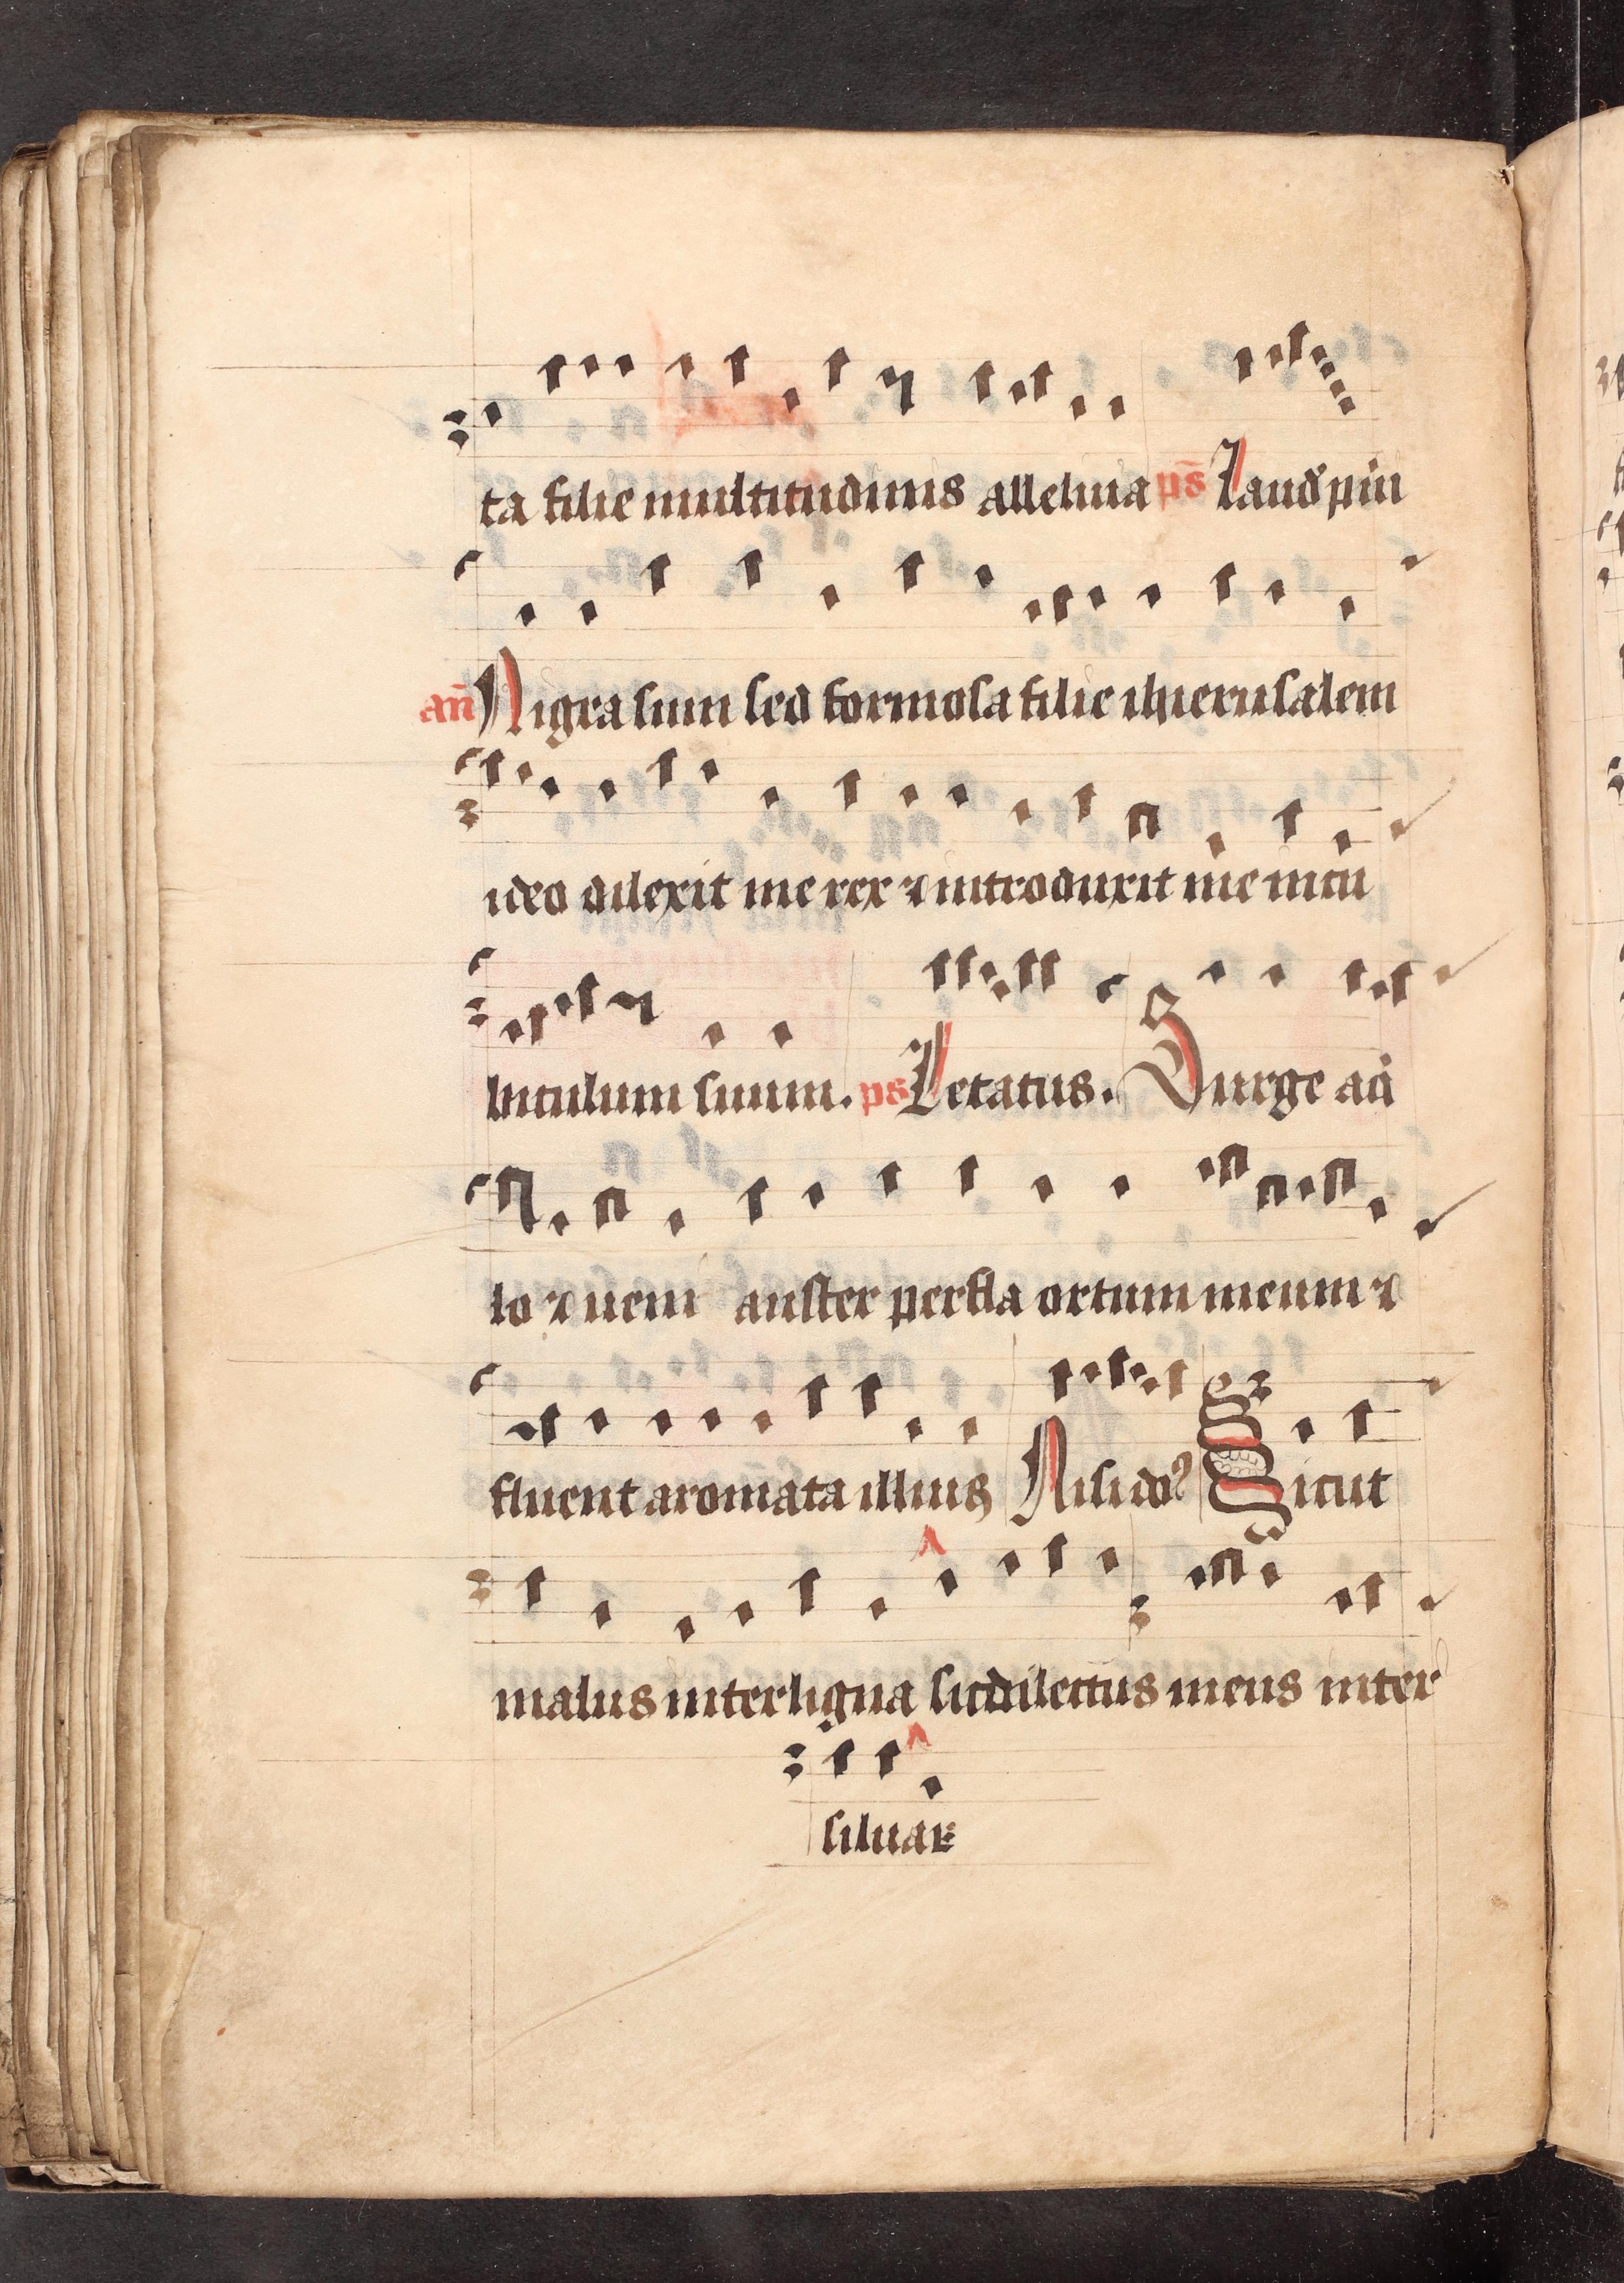 ta filie multitudinis alleluia ps̄ Laud pūi
an̄ Nigra sum sed formosa filie iherusalem
ideo dilexit me rex ⁊ introduxit me in cu
biculum suum. ps Letatus. Surge aq̄
lo ⁊ ueni auster perfla ortum meum ⁊
fluent aromata illius Nisi do⁹ Sicut
malus inter ligna sic dilectus meus inter
siluaꝝ